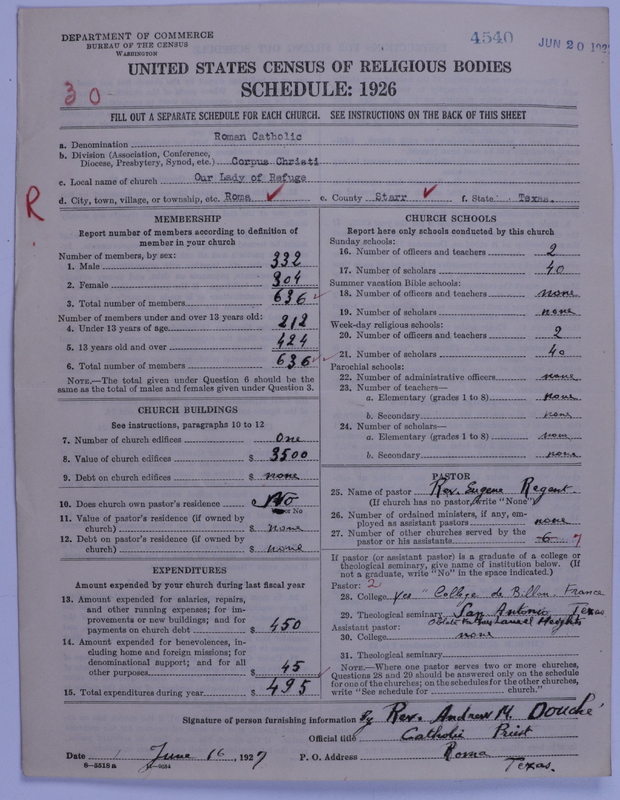 DEPARTMENT OF COMMERCE
BUREAU OF THE CENSUS
WASHINGTON
4540
JUN 20 192
UNITED STATES CENSUS OF RELIGIOUS BODIES
SCHEDULE: 1926
30
FILL OUT A SEPARATE SCHEDULE FOR EACH CHURCH. SEE INSTRUCTIONS ON THE BACK OF THIS SHEET
a. Denomination Roman Catholic
b. Division (Association, Conference,
Diocese, Presbytery, Synod, etc.) Corpus Christi
c. Local name of church Our Lady of Refuge
d. City, town, village, or township, etc. Roma e. County Starr f. State Texas.
R
MEMBERSHIP
Report number of members according to definition of
member in your church
Number of members, by sex:
1. Male 332
2. Female 304
3. Total number of members 636
Number of members under and over 13 years old:
4. Under 13 years of age 212
5. 13 years old and over 424
6. Total number of members 636
NOTE.—The total given under Question 6 should be the
same as the total of males and females given under Question 3.
CHURCH BUILDINGS
See instructions, paragraphs 10 to 12
7. Number of church edifices One
8. Value of church edifices $ 3500
9. Debt on church edifices $ none
10. Does church own pastor's residence No
11. Value of pastor's residence (if owned by
church) $ none
12. Debt on pastor's residence (if owned by
church) $ none
EXPENDITURES
Amount expended by your church during last fiscal year
13. Amount expended for salaries, repairs,
and other running expenses; for im-
provements or new buildings; and for
payments on church debt $ 450
14. Amount expended for benevolences, in-
cluding home and foreign missions; for
denominational support; and for all
other purposes $ 45
15. Total expenditures during year $ 495
CHURCH SCHOOLS
Report here only schools conducted by this church
Sunday schools:
16. Number of officers and teachers 2
17. Number of scholars 40
Summer vacation Bible schools:
18. Number of officers and teachers none
19. Number of scholars none
Week-day religious schools:
20. Number of officers and teachers 2
21. Number of scholars 40
Parochial schools:
22. Number of administrative officers none
23. Number of teachers—
a. Elementary (grades 1 to 8) none
b. Secondary none
24. Number of scholars—
a. Elementary (grades 1 to 8) none
b. Secondary none
PASTOR
25. Name of pastor Rev. Eugene Regent.
(If church has no pastor, write "None")
26. Number of ordained ministers, if any, em-
ployed as assistant pastors none
27. Number of other churches served by the
pastor or his assistants 6 7
If pastor (or assistant pastor) is a graduate of a college or
theological seminary, give name of institution below. (If
not a graduate, write "No" in the space indicated.)
Pastor: 2
28. College yes "College de Billom, France
29. Theological seminary "San Antonio, Texas
Laurel Heights
Assistant pastor:
30. College none
31. Theological seminary
NOTE.—Where one pastor serves two or more churches,
Questions 28 and 29 should be answered only on the schedule
for one of the churches; on the schedules for the other churches,
write "See schedule for church."
Signature of person furnishing information By Rev. Andrew M. Douché
Official title Catholic Priest
Date June 16, 1927 P. O. Address Roma
Texas.
6—5518 a